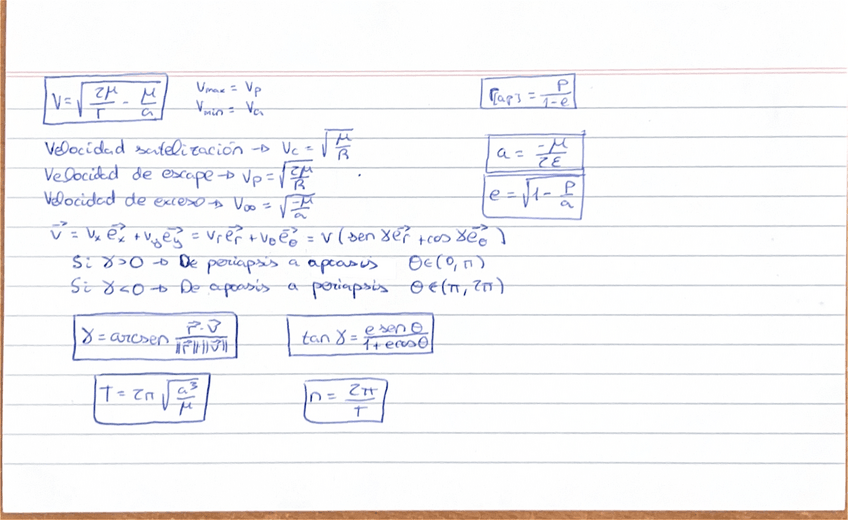 V = √(2μ/r - μ/a)
Vmax = Vp
Vmin = Va
r[ap] = P/(1-e)
Velocidad satelización → Vc = √(μ/R)
a = -μ/2ε
Velocidad de escape → Vp = √(2μ/R)
e = √(1 - P/a)
Velocidad de exceso → V∞ = √(-μ/a)
v⃗ = vx e⃗x + vy e⃗y = vr e⃗r + vθ e⃗θ = v (sen γ e⃗r + cos γ e⃗θ)
Si γ>0 → De periapsis a apoasis θ∈(0, π)
Si γ<0 → De apoasis a periapsis θ∈(π, 2π)
γ = arcsen (r⃗·v⃗)/(||r⃗|| ||v⃗||)
tan γ = (e sen θ)/(1+e cos θ)
T = 2π √(a³/μ)
n = 2π/T